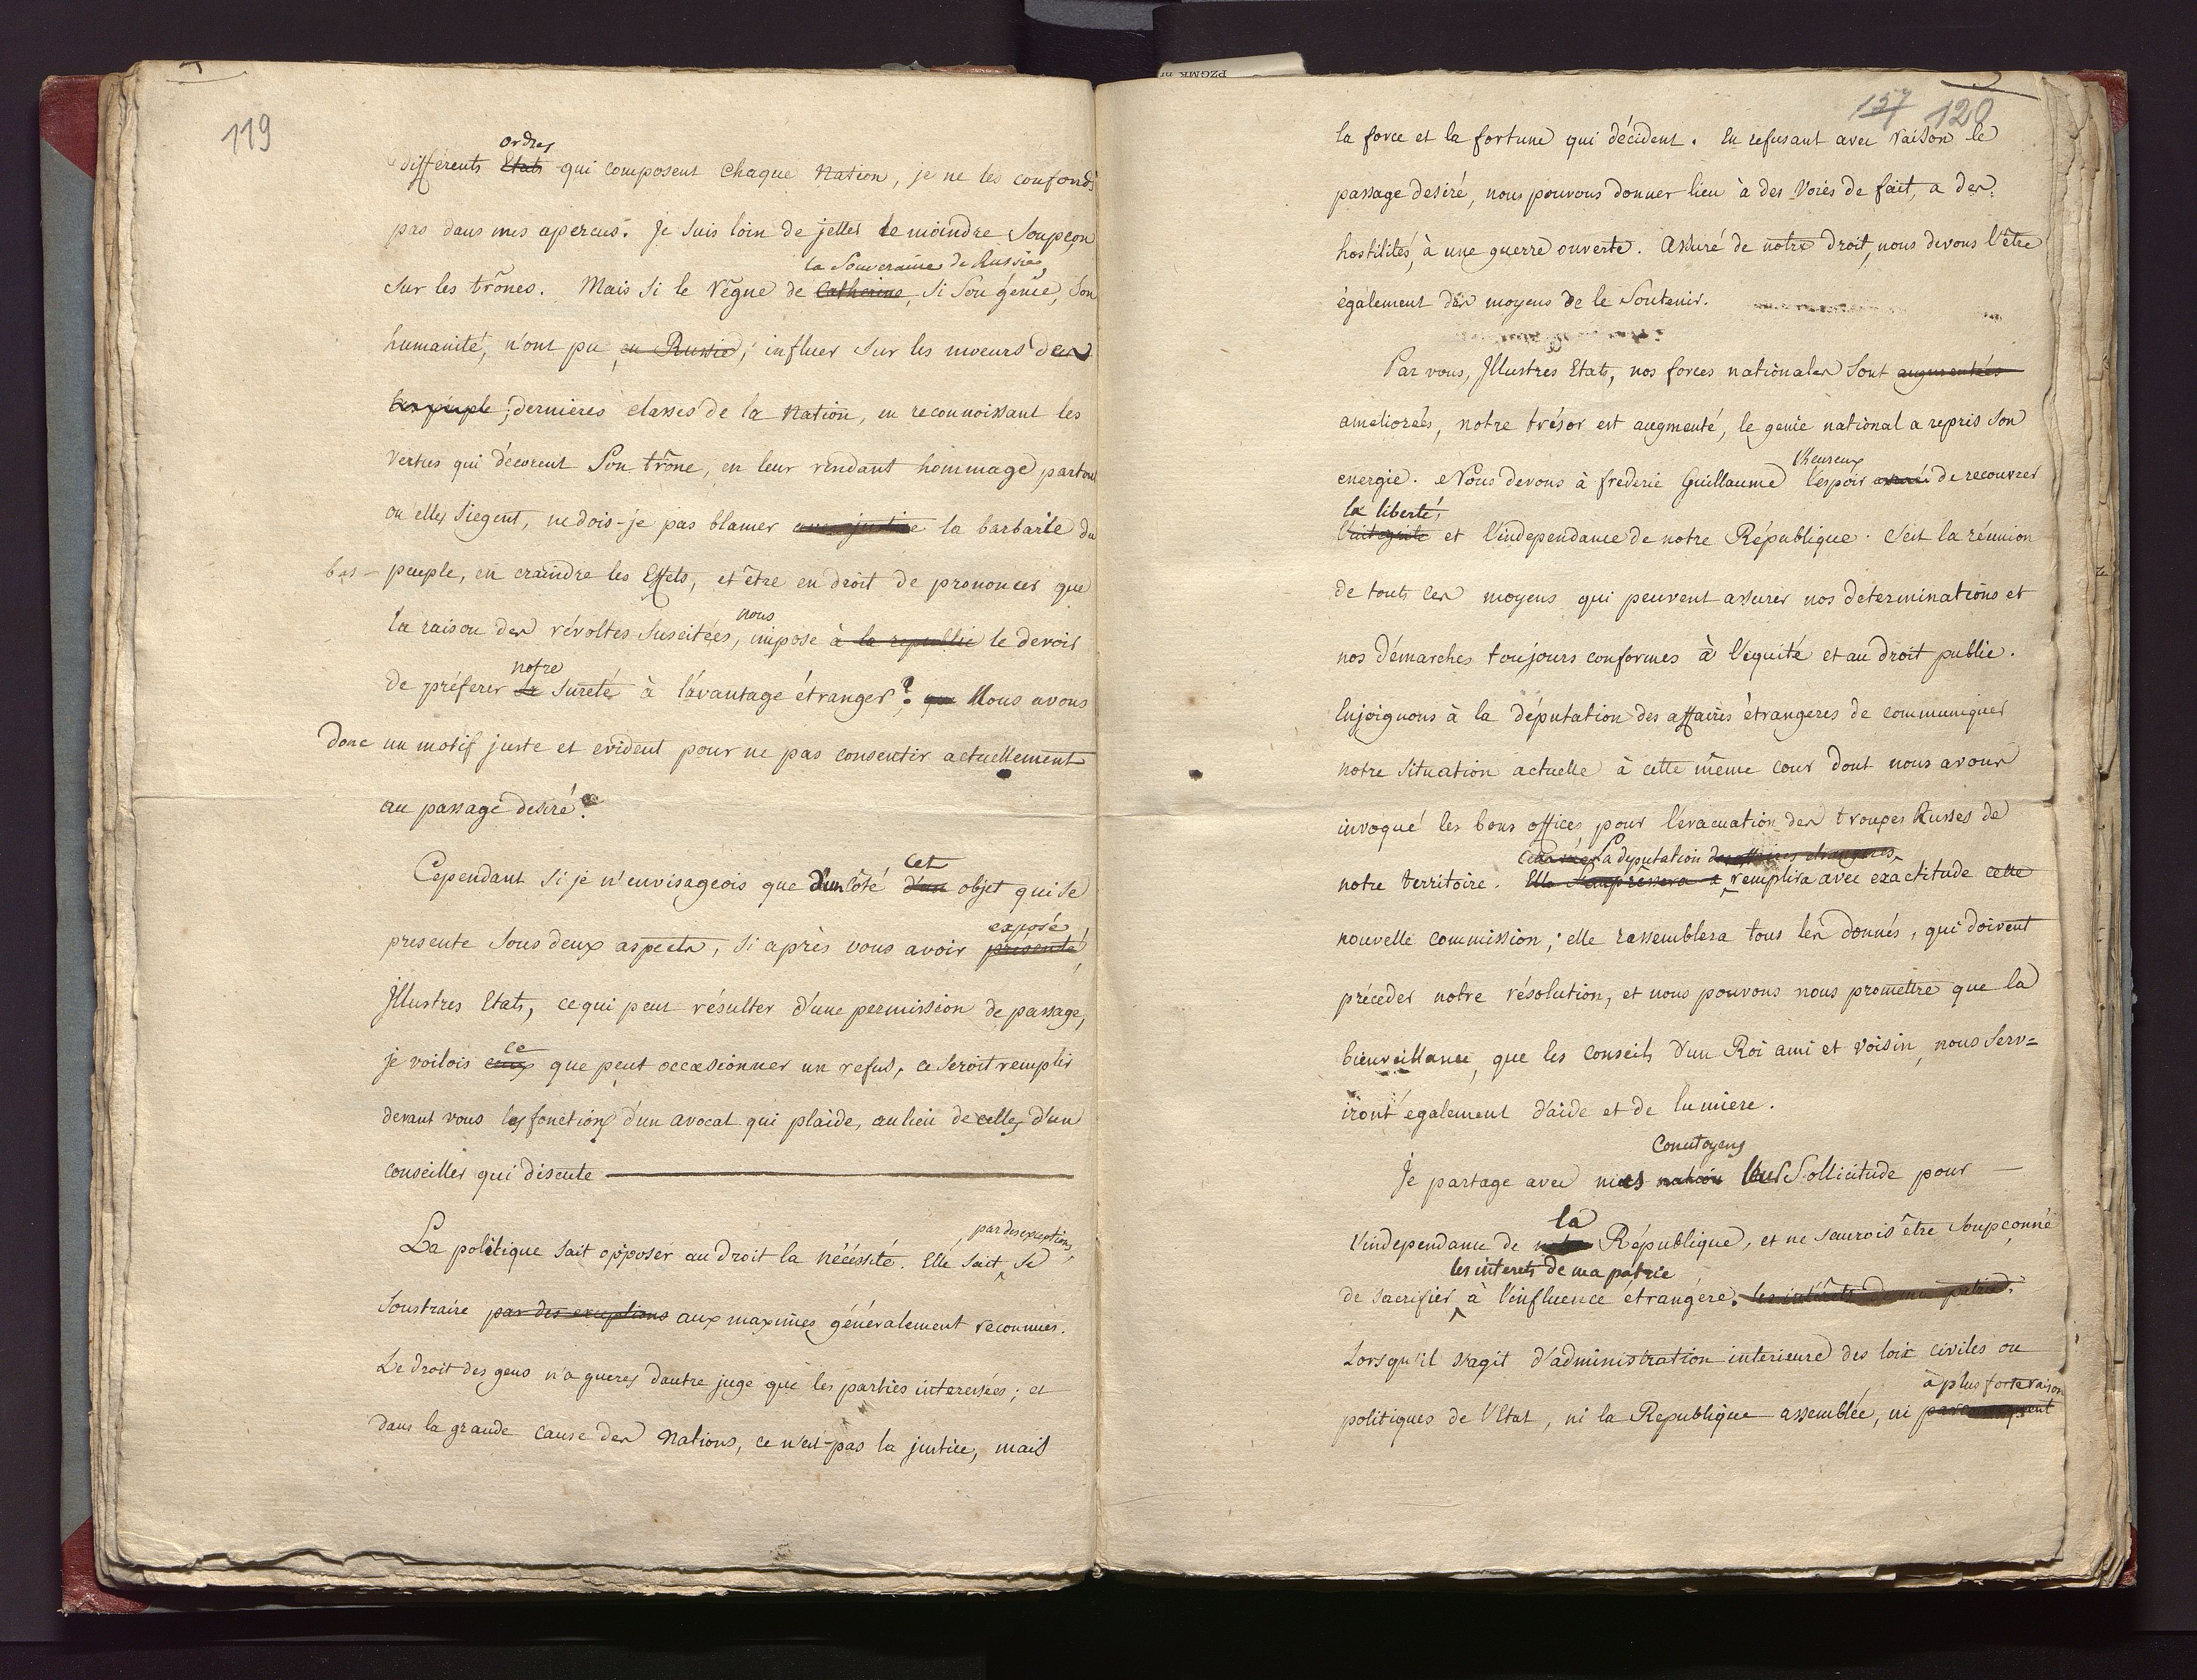 119
ordres
différents Etats qui composent chaque Nation, je ne les confonds
pas dans mes apercus. Je suis loin de jetter le moindre soupçon
la Souveraine de Russie,
sur les trônes. Mais si le Règne de Catherine, si son génie, son
humanité, n'ont pu en Russie, influer sur les moeurs des
bas peuple; dernieres classes de la Nation, en reconnoissant les
vertus qui décorent son trône, en leur rendant hommage partout
ou elles siegent, ne dois-je pas blamer avec justice la barbarie du
bas-peuple, en craindre les Effets, et être en droit de prononcer que
nous
la raison des révoltes suscitées, impose à la republic le devoir
notre
de préferer sa sureté à l'avantage étranger? que Nous avons
donc un motif juste et evident pour ne pas consentir actuellement
au passage desiré.
cet
Cependant si je n'envisageois que d'un côté d'un objet qui se
exposé
presente sous deux aspects, si après vous avoir presenté,
Illustres Etats, ce qui peut résulter d'une permission de passage,
ce
je voilois ceux que peut occasionner un refus, ce seroit remplir
devant vous les fonctions d'un avocat qui plaide, au lieu de celles d'un
conseiller qui discute
par des exceptions,
La politique sait opposer au droit la nécéssité. Elle sait se
soustraire par des exceptions aux maximes généralement reconnues.
Le droit des gens n'a gueres dautre juge que les parties interessées; et
dans la grande cause des Nations, ce n'est pas la justice, mais
157 120
la force et la fortune qui décident. En refusant avec raison le
passage desiré, nous pouvons donner lieu à des voies de fait, a des
hostilités, à une guerre ouverte. Assuré de notre droit, nous devons l'être
également des moyens de le soutenir.
Par vous, Illustres Etats, nos forces nationales sont augmentées
ameliorées, notre trésor est augmenté, le genie national a repris son
l'heureux
energie. Nous devons à frederic Guillaume l'espoir assuré de recouvrer
la liberté,
l'integrité et l'independance de notre République. Seit la réunion
de touts les moyens qui peuvent assurer nos determinations et
nos démarches toujours conformes à l'équité et au droit public.
Enjoignons à la députation des affaires étrangeres de communiquer
notre situation actuelle à cette même cour dont nous avons
invoqué les bons offices pour l'evacuation des troupes Russes de
La deputation des affaires etrangeres
notre territoire. Elle s'empressera a remplira avec exactitude cette
nouvelle commission; elle rassemblera tous les donnés, qui doivent
préceder notre résolution, et nous pouvons nous promettre que la
bienveillance, que les conseils d'un Roi ami et voisin, nous serv=
iront egalement d'aide et de lumiere.
Concitoyens
Je partage avec mes nation leur Sollicitude pour
la
l'independance de notre République, et ne saurois être soupçonné
les interets de ma patrie
de sacrifier à l'influence étrangére. les intérêts de ma patrie.
Lorsqu'il s'agit d'administration interieure des loix civiles ou
à plus forte raison
politiques de l'Etat, ni la Republique assemblée, ni par consequent